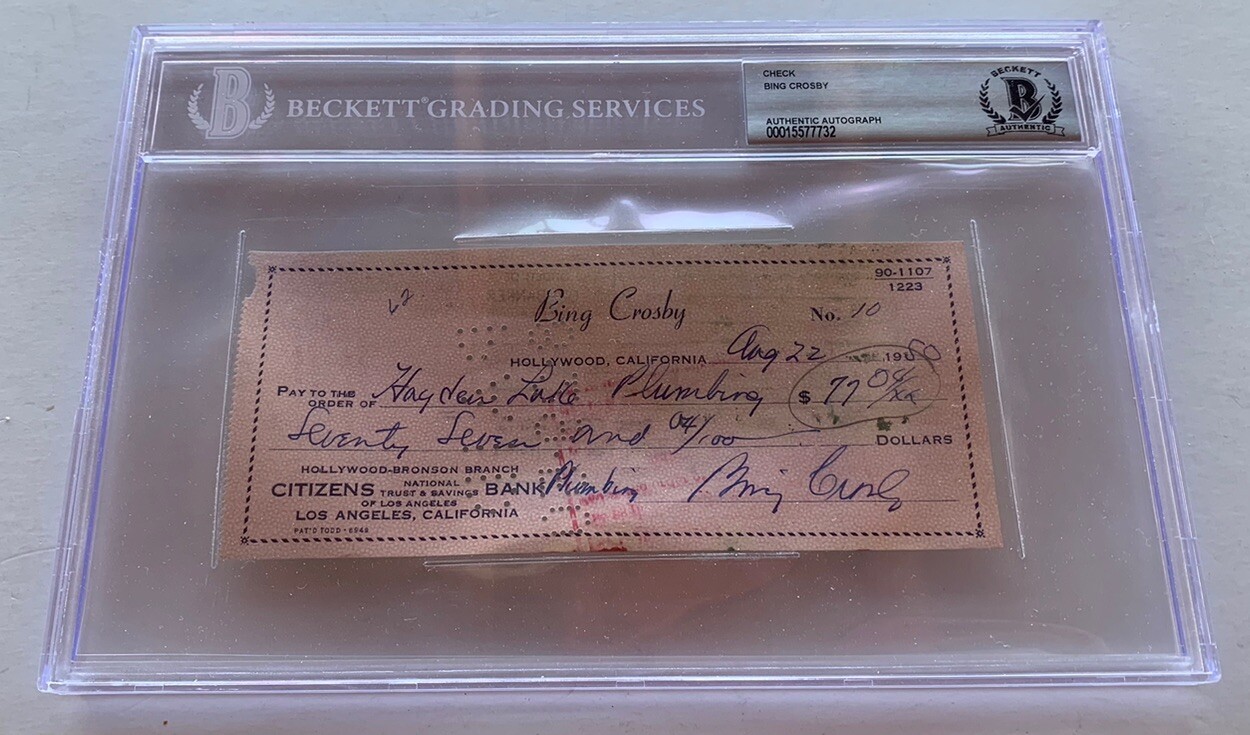 BECKETT® GRADING SERVICES
CHECK
BING CROSBY
AUTHENTIC AUTOGRAPH
00015577732
BECKETT
B
AUTHENTIC
90-1107
1223
Bing Crosby
No. 10
HOLLYWOOD, CALIFORNIA Aug 22 1950
PAY TO THE ORDER OF Hayden Lake Plumbing $ 77 04/xx
Seventy Seven and 04/100 DOLLARS
HOLLYWOOD-BRONSON BRANCH
CITIZENS NATIONAL TRUST & SAVINGS BANK
OF LOS ANGELES
LOS ANGELES, CALIFORNIA
Plumbing Bing Crosby
PAT'D TODD